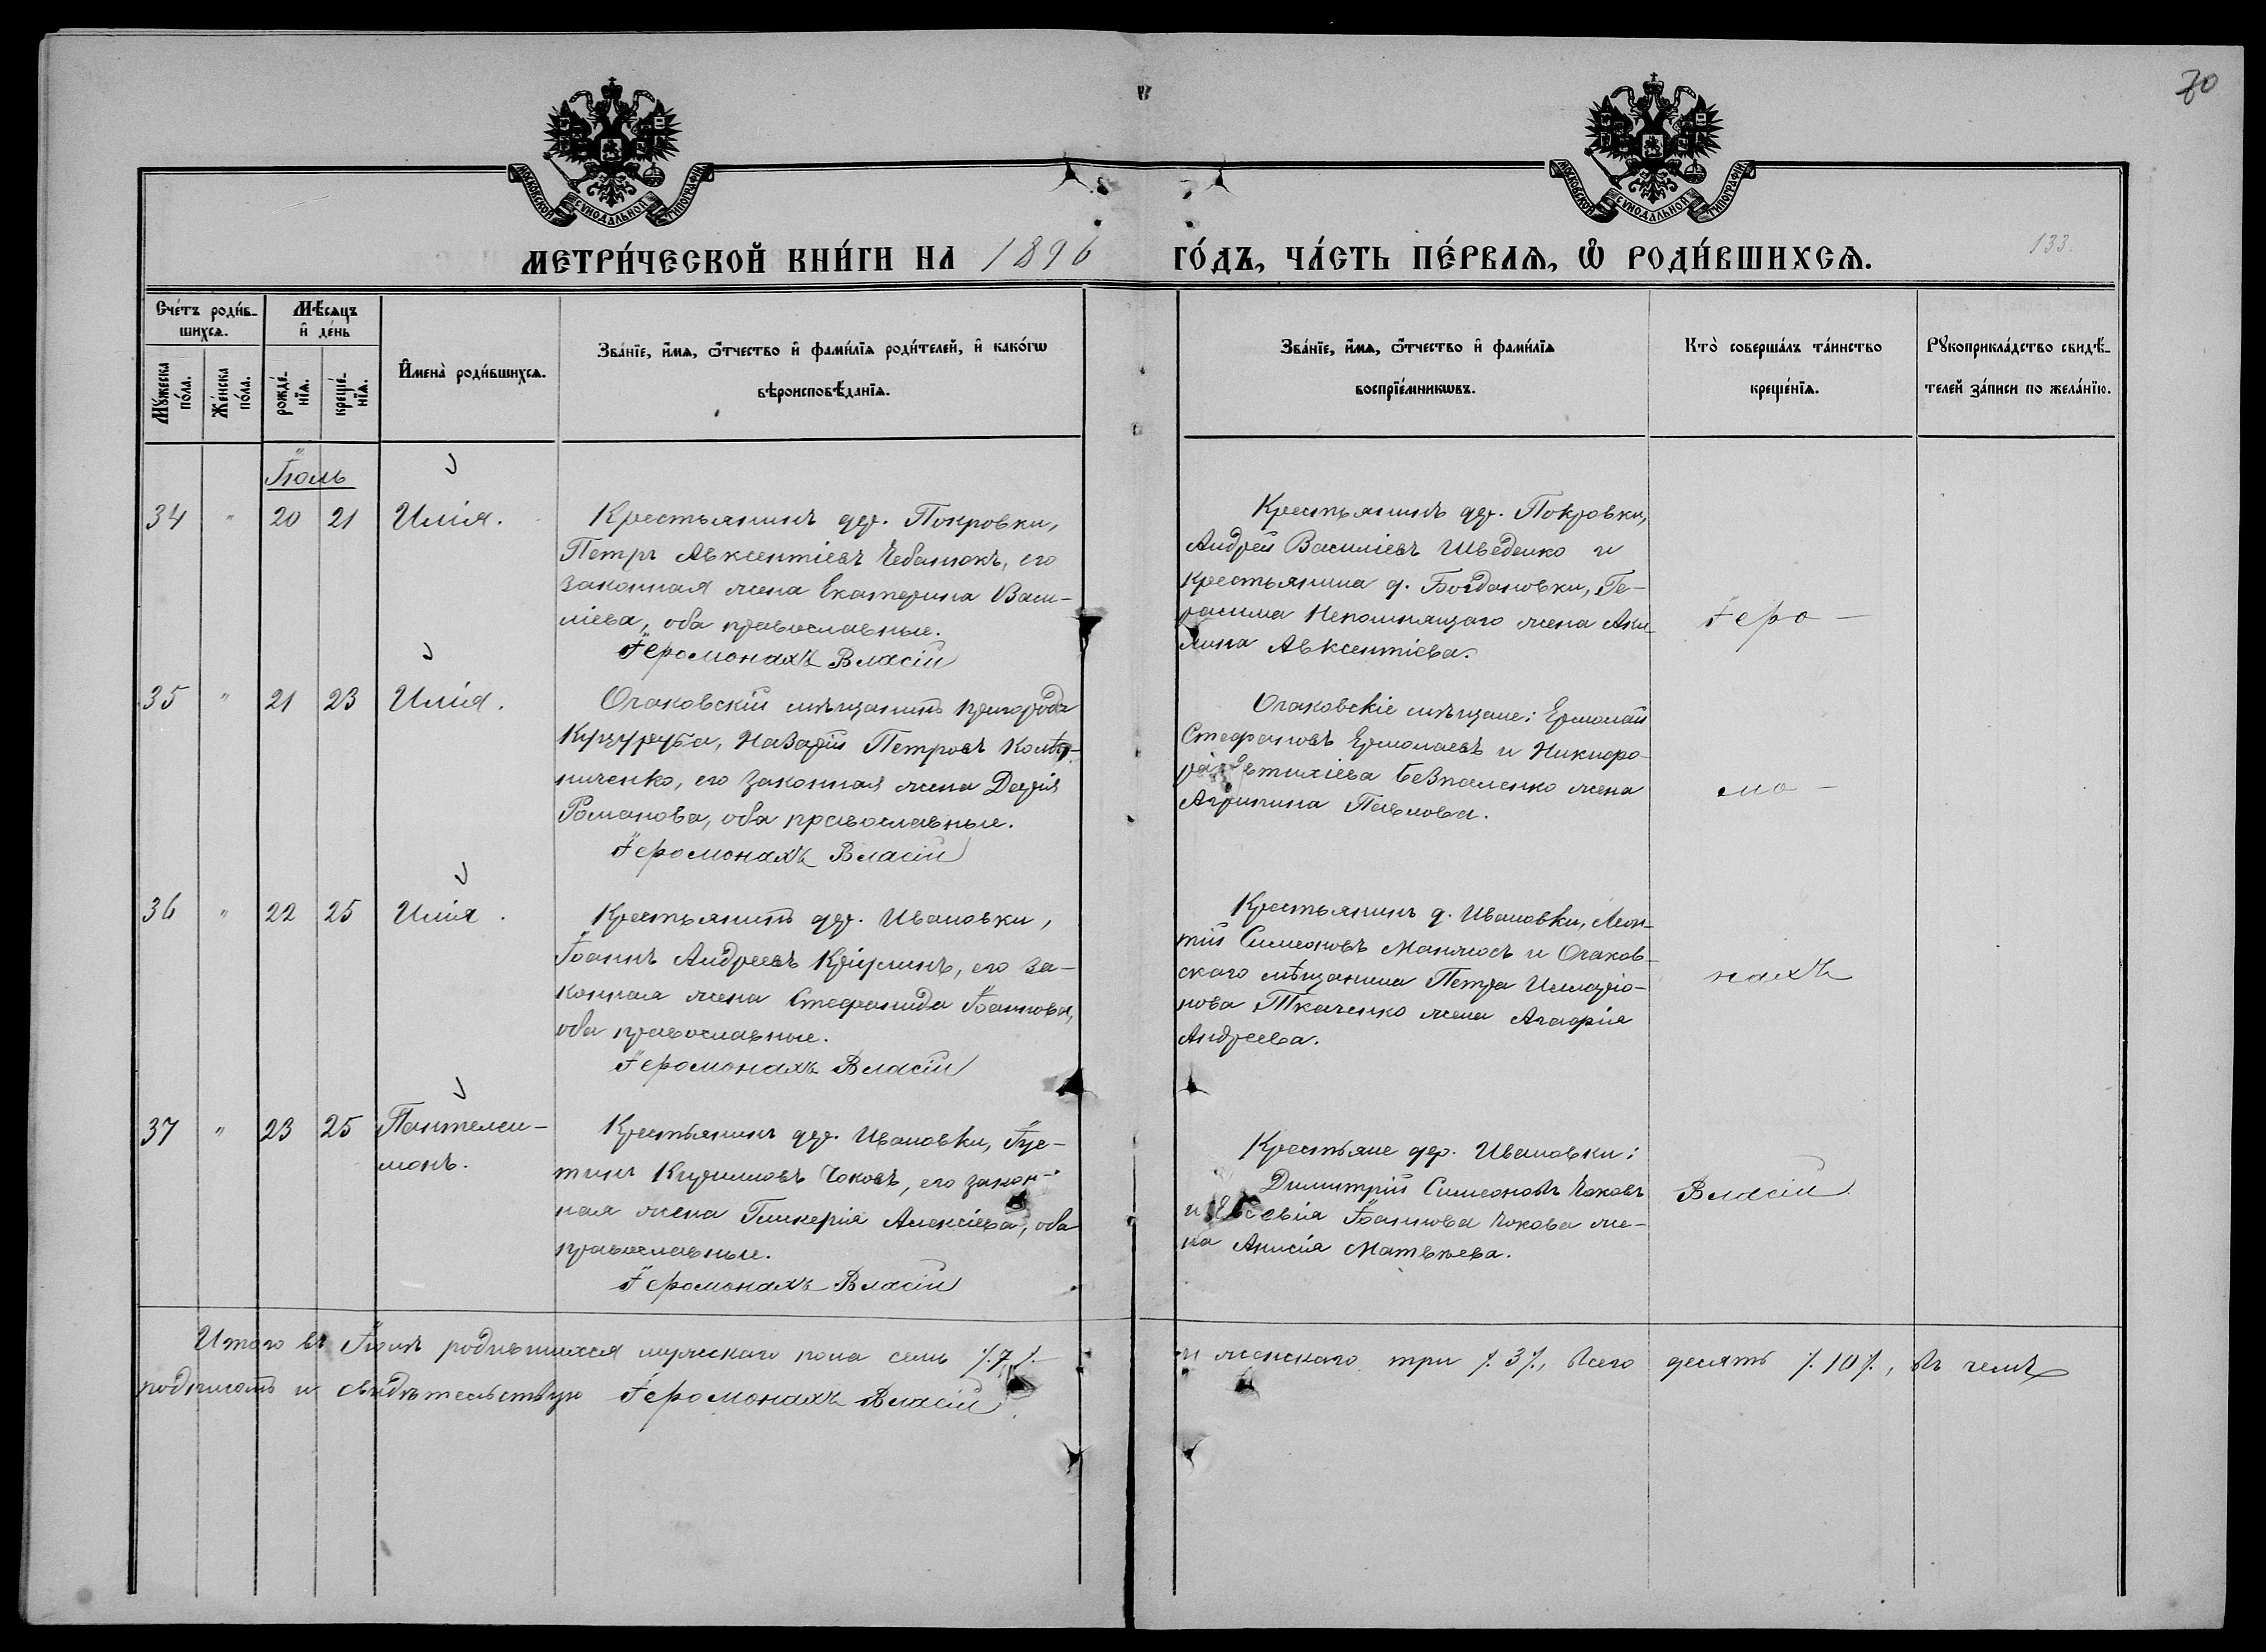 70
МОСКОВСКОЙ СУНОДАЛЬНОЙ ТИПОГРАФІИ
МОСКОВСКОЙ СУНОДАЛЬНОЙ ТИПОГРАФІИ
МЕТРИ́ЧЕСКОЙ КНИ́ГИ НА 1896 ГО́ДЪ, ЧА́СТЬ ПЕ́РВАѦ, Ѡ҆ РОДИ́ВШИХСѦ.
133.
Сче́тъ роди́в-
шихсѧ.
Мꙋ́жеска
по́ла.
Же́нска
по́ла.
Мѣ́сѧцъ
и҆ де́нь
рожде́-
нїѧ.
креще́-
нїѧ.
И҆мена̀ роди́вшихсѧ.
Зва́нїе, и҆́мѧ, ѻ҆́тчество и҆ фами́лїѧ роди́телей, и҆ како́гѡ
вѣроисповѣ́данїѧ.
Зва́нїе, и҆́мѧ, ѻ҆́тчество и҆ фами́лїѧ
воспрїе́мникѡвъ.
Кто̀ соверша́лъ та́инство
креще́нїѧ.
Рꙋкоприкла́дство свидѣ́-
телей за́писи по жела́нїю.
Іюль
34 " 20 21 Илія.
Крестьянинъ дер. Покровки,
Петръ Авксентіевъ Чебанюкъ, его
законная жена Екатерина Васи-
ліева, оба православные.
Іеромонахъ Власій
Крестьянинъ дер. Покровки,
Андрей Василіевъ Шведенко и
крестьянина д. Богдановки, Ге-
расима Непомнящаго жена Аки-
лина Авксентіева.
Іеро-
35 " 21 23 Илія.
Очаковскій мѣщанинъ пригорода
Куцуруба, Назарій Петровъ
его законная жена Дарія
Романова, оба православные.
Іеромонахъ Власій
Очаковскіе мѣщане: Ермолай
Стефановъ Ермолаевъ и Никифо-
ра Безпаленко жена
Агрипина Павлова.
мо-
36 " 22 25 Илія.
Крестьянинъ дер. Ивановки,
Іоаннъ Андреевъ его за-
конная жена Стефанида Іоаннова,
оба православные.
Іеромонахъ Власій
Крестьянинъ д. Ивановки, Леон-
тій Симеоновъ и Очаков-
скаго мѣщанина Петра Иларіо-
нова Ткаченко жена Агафія
Андреева.
нахъ
37 " 23 25 Пантелеи-
монъ.
Крестьянинъ дер. Ивановки, Іус-
тинъ Кирилловъ Чоковъ, его закон-
ная жена Гликерія Алексіева, оба
православные.
Іеромонахъ Власій
Крестьяне дер. Ивановки:
Димитрій Симеоновъ Чоковъ
и Евсевія Іоаннова Чокова же-
на Анисія Матвѣева.
Власій
Итого въ Іюлѣ родившихся мужскаго пола семь /.7./ и женскаго три /.3/., всего десять /.10/., въ чемъ
подписомъ и свидѣтельствую Іеромонахъ Власій